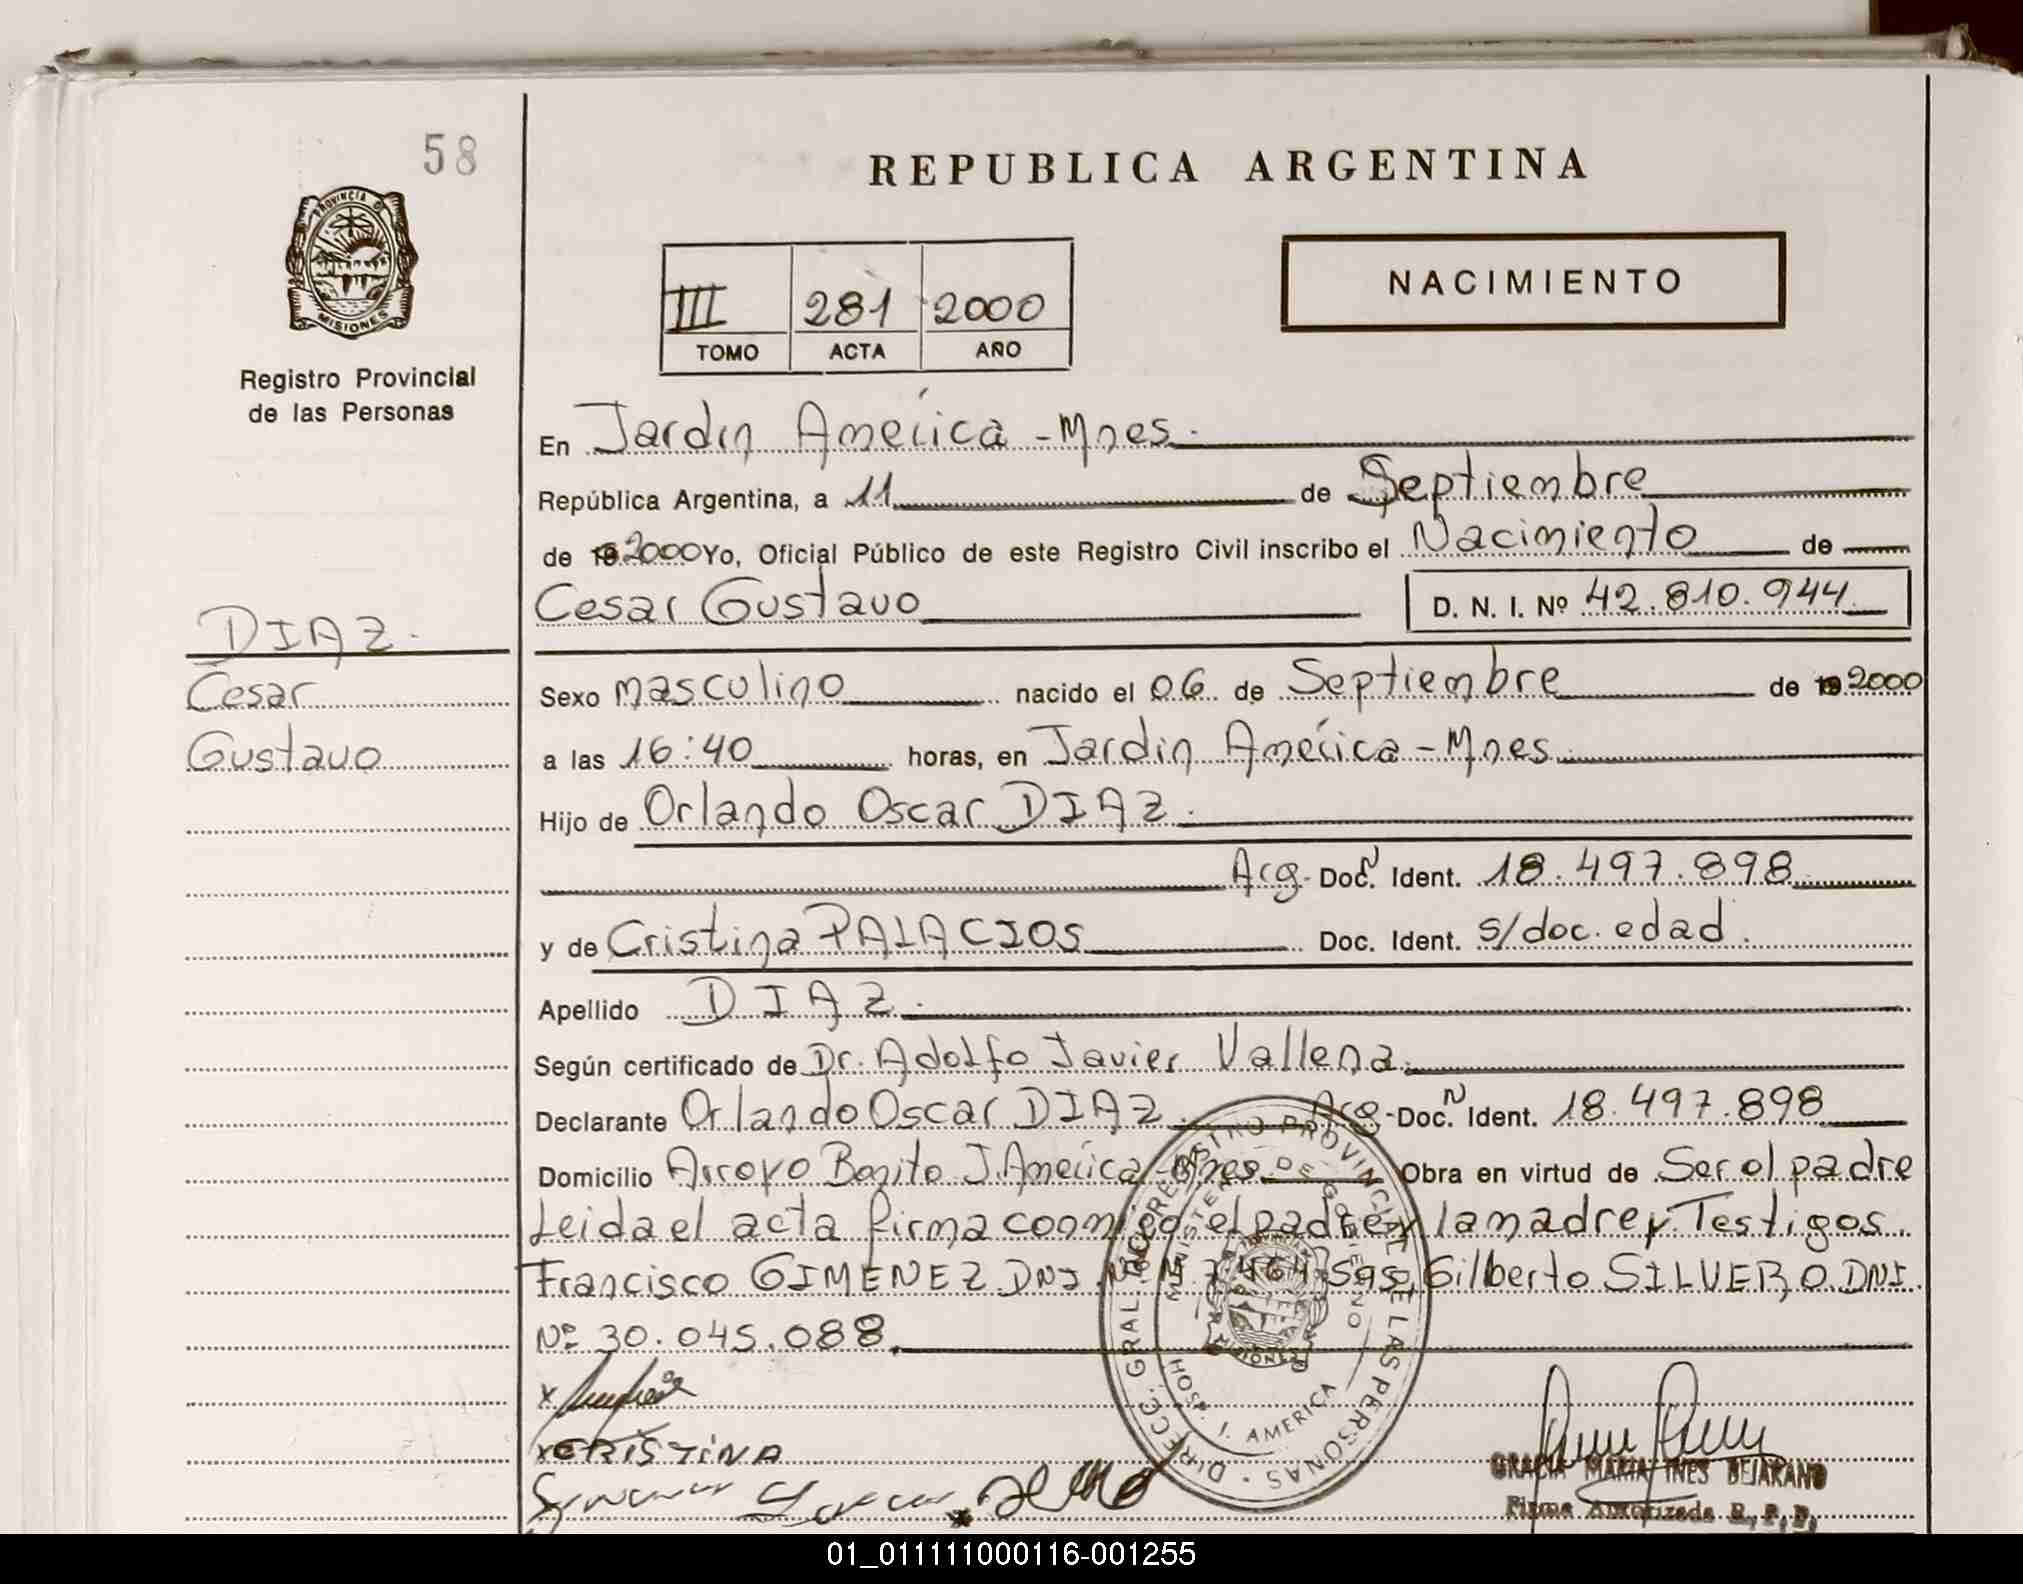 58
REPUBLICA ARGENTINA
PROVINCIA DE
MISIONES
Registro Provincial
de las Personas
III 281 2000
TOMO ACTA AÑO
NACIMIENTO
En Jardín América - Mnes.
República Argentina, a 11 de Septiembre
de 2000 Yo, Oficial Público de este Registro Civil inscribo el Nacimiento de
Cesar Gustavo D. N. I. Nº 42.810.944
DIAZ.
Cesar
Gustavo
Sexo masculino nacido el 06 de Septiembre de 2000
a las 16:40 horas, en Jardin América - Mnes.
Hijo de Orlando Oscar DIAZ.
Arg. Doc. N Ident. 18.497.898
y de Cristina PALACIOS Doc. Ident. s/doc. edad.
Apellido DIAZ.
Según certificado de Dr. Adolfo Javier Vallena.
Declarante Orlando Oscar DIAZ. Arg-Doc. N Ident. 18.497.898
Domicilio Arroyo Bonito J. América - Mnes. Obra en virtud de Ser el padre
Leida el acta firma conmigo el padre y la madre y Testigos
Francisco GIMENEZ DNI Nº Gilberto SILVERO. DNI.
Nº 30.045.088.
x
x CRISTINA
DIRECC. GRAL. REGISTRO PROVINCIAL DE LAS PERSONAS
MINISTERIO DE GOBIERNO
HOSP. J. AMERICA
GRACIA MARIA INES BEJARANO
Firma Autorizada R. P. P.
01_011111000116-001255